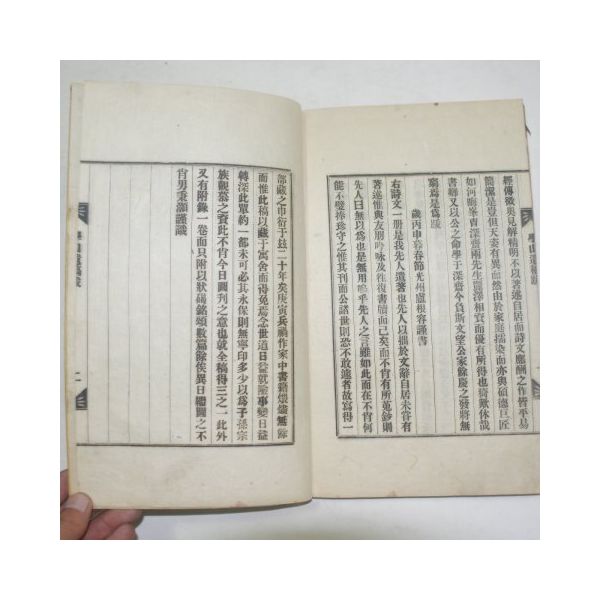 經傳微奧見解精明不以著述自居而詩文應酬之作皆平易
簡潔是豈但天姿有異而然由於家庭擂染而亦與碩德巨匠
如河峴峯胄深齋兩先生麗澤相資而優有所得也猗歟休哉
書啣又以公之命學于深齋今負斯文望公家餘慶之發將無
窮焉是爲跋
歲丙申暮春節光州盧根容謹書
右詩文一册是我先人遺著也先人以拙於文辭自居未甞有
著述惟與友朋吟咏及往復書牘而已矣而不肯有所蒐鈔則
先人曰無以爲也是無用嗚乎先人之言雖如此而在不肖何
能不璧捧珍守之惟其刊而公諸世則恐不敢遽者故寫得一
部藏之巾衍于玆二十年矣庚寅兵禍作家中書籍煨燼無餘
而惟此稿以藏于寓舍而得免焉念世道日益就險事變日益
轉深此單約一都未可必其永保則無寧印多少以爲子孫宗
族觀慕之資此不肖今日圖刊之意也就全稿得三之一此外
又有附錄一卷而只附以狀碣銘頌數篇餘俟異日繼圖之不
肖男秉灝謹識
二